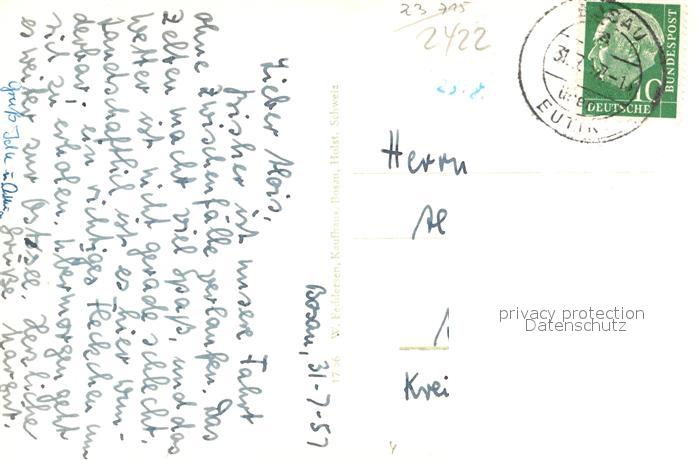 Bosau, 31-7-57
Lieber Alois,
bisher ist unsere Fahrt
ohne Zwischenfälle verlaufen. Das
Zelten macht viel Spaß, und das
Wetter ist nicht gerade schlecht.
Landschaftlich ist es hier wun-
derbar, ein richtiges Fleckchen um
sich zu erholen. Übermorgen geht
es weiter zur Ostsee. Herzliche
Grüße Margret.
Gruß
17 56 W. Feddersen, Kaufhaus, Bosau, Holst. Schweiz
23 715
2422
23.8.
BOSAU
31.7.
EUTIN
10
DEUTSCHE
BUNDESPOST
Herrn
Al
Krei
privacy protection
Datenschutz